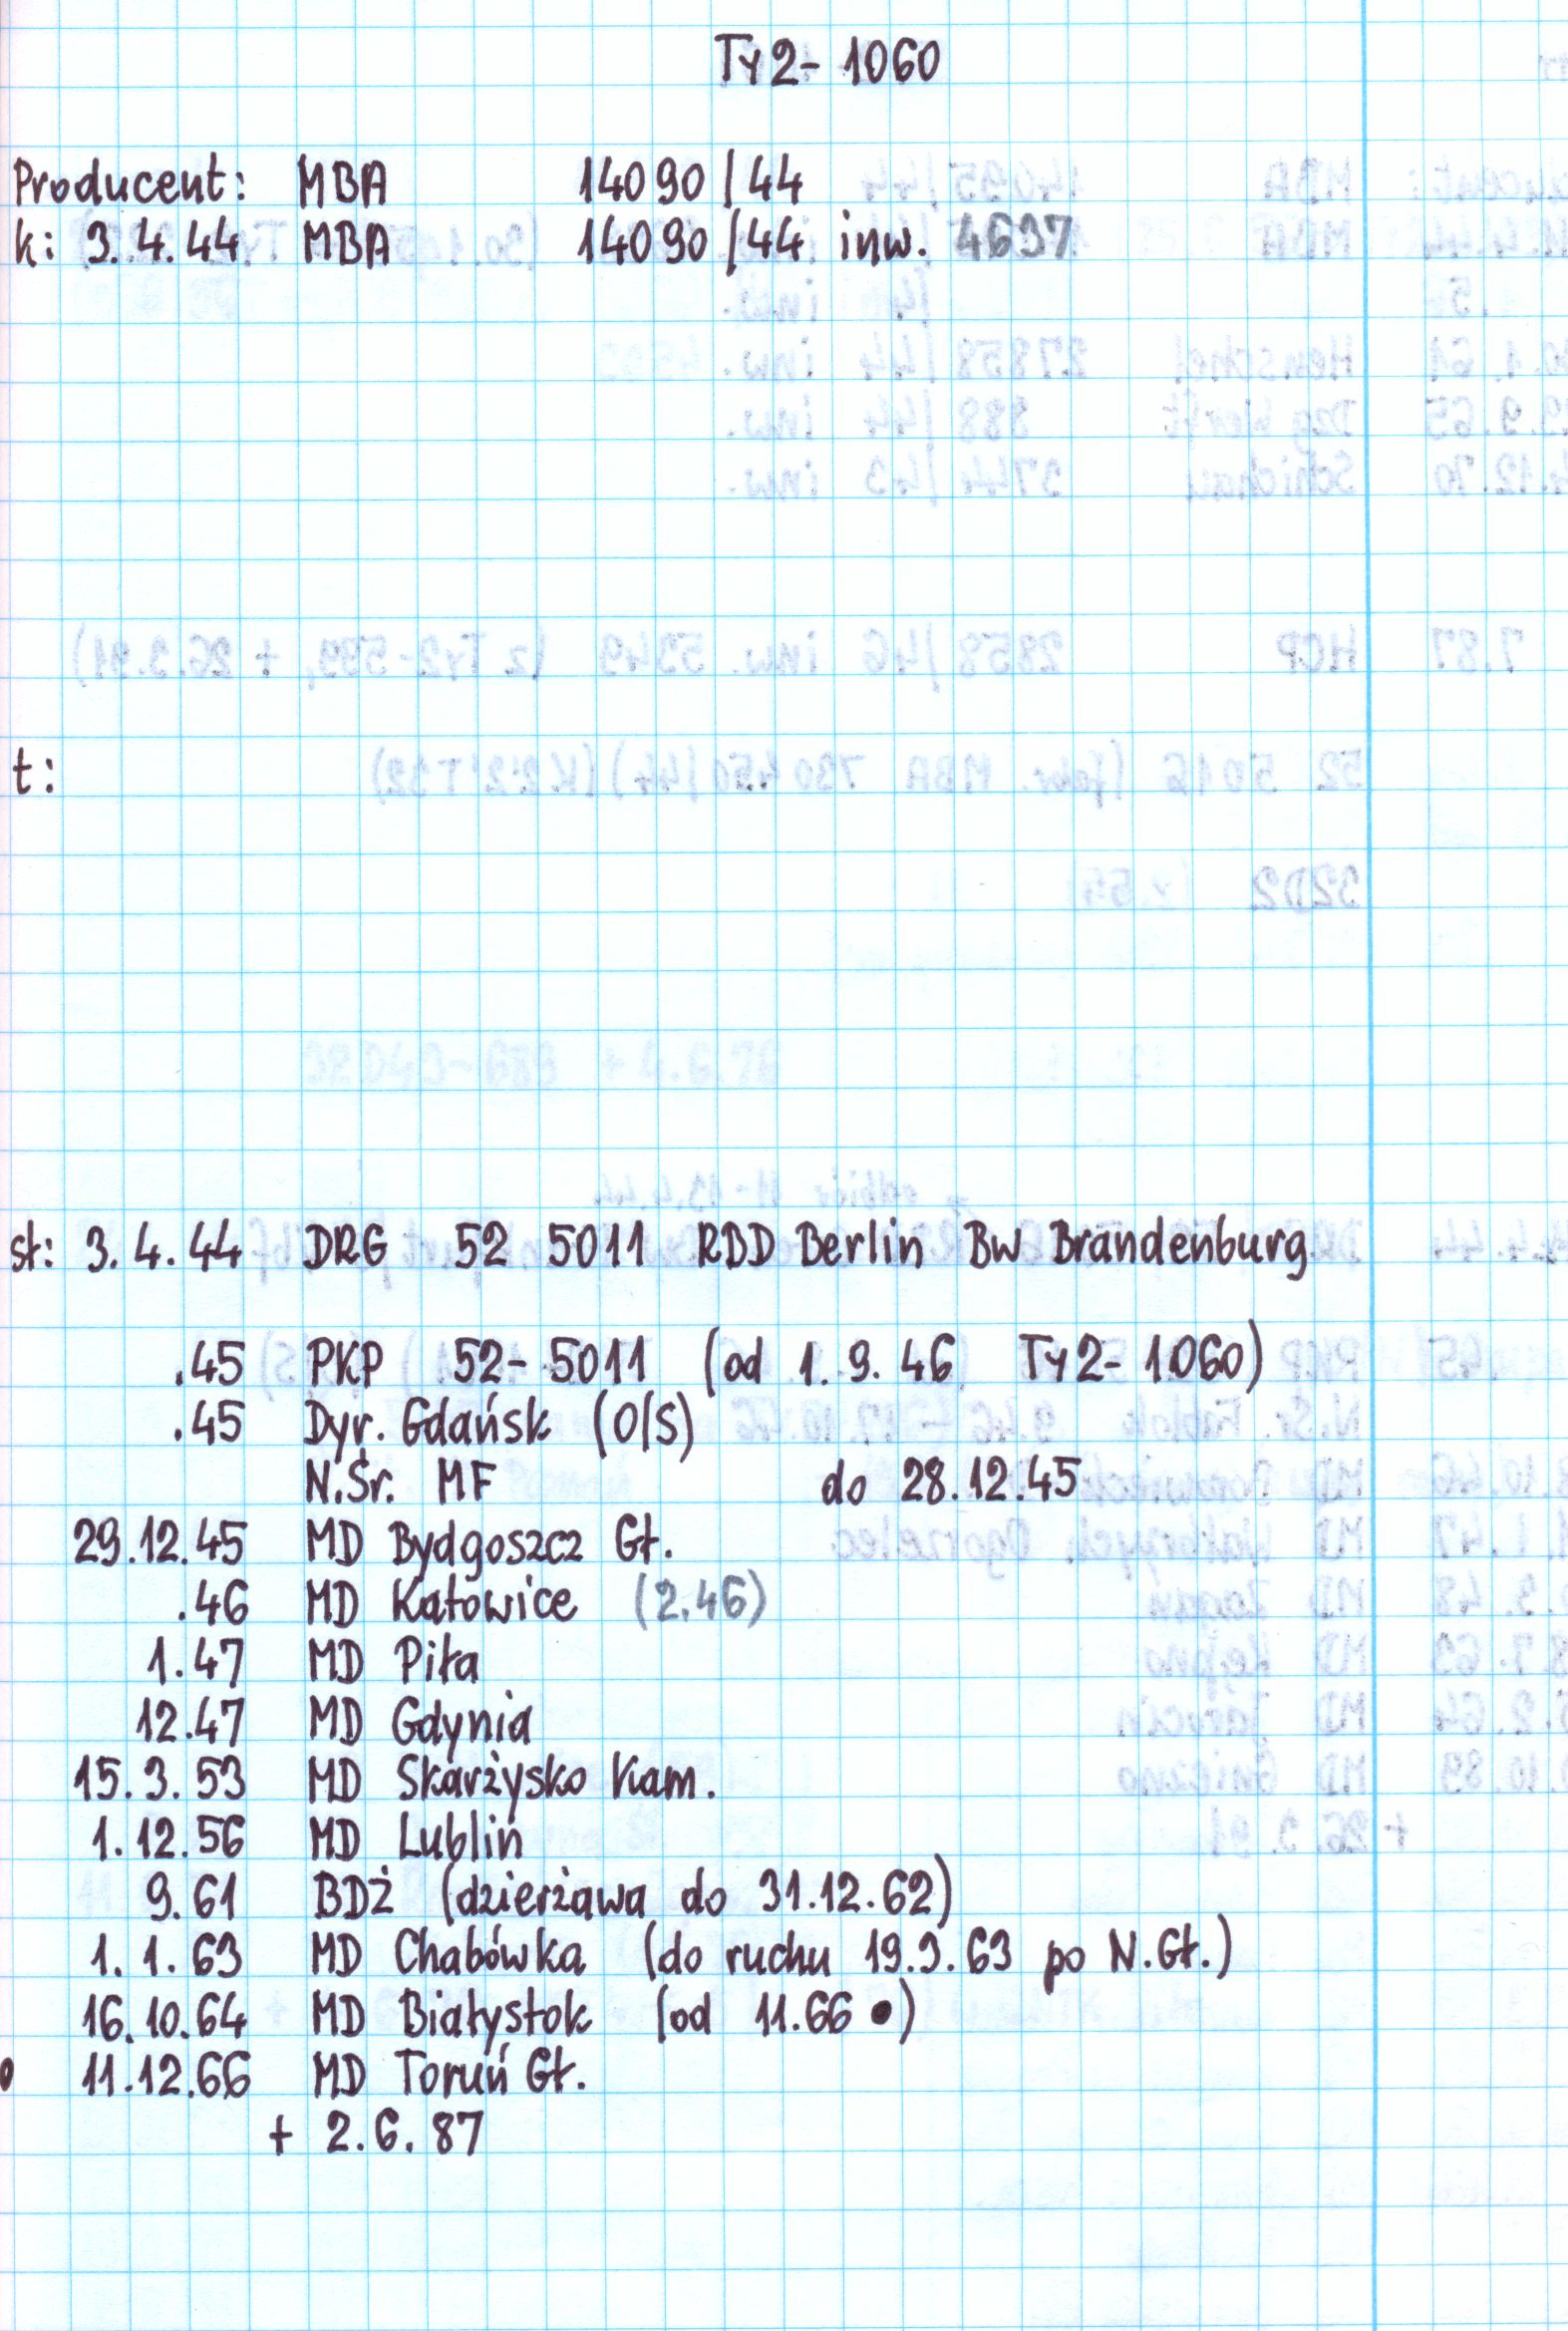 Ty2-1060
Producent: MBA 14090/44
k: 3.4.44 MBA 14090/44 inw. 4637
t:
st: 3.4.44 DRG 52 5011 RBD Berlin Bw Brandenburg
.45 PKP 52-5011 (od 1.9.46 Ty2-1060)
.45 Dyr. Gdańsk (O/S)
N.Śr. MF do 28.12.45
29.12.45 MD Bydgoszcz Gł.
.46 MD Katowice (2.46)
1.47 MD Piła
12.47 MD Gdynia
15.3.53 MD Skarżysko Kam.
1.12.56 MD Lublin
9.61 BDŻ (dzierżawa do 31.12.62)
1.1.63 MD Chabówka (do ruchu 19.3.63 po N.Gł.)
16.10.64 MD Białystok (od 11.66 •)
11.12.66 MD Toruń Gł.
+ 2.6.87